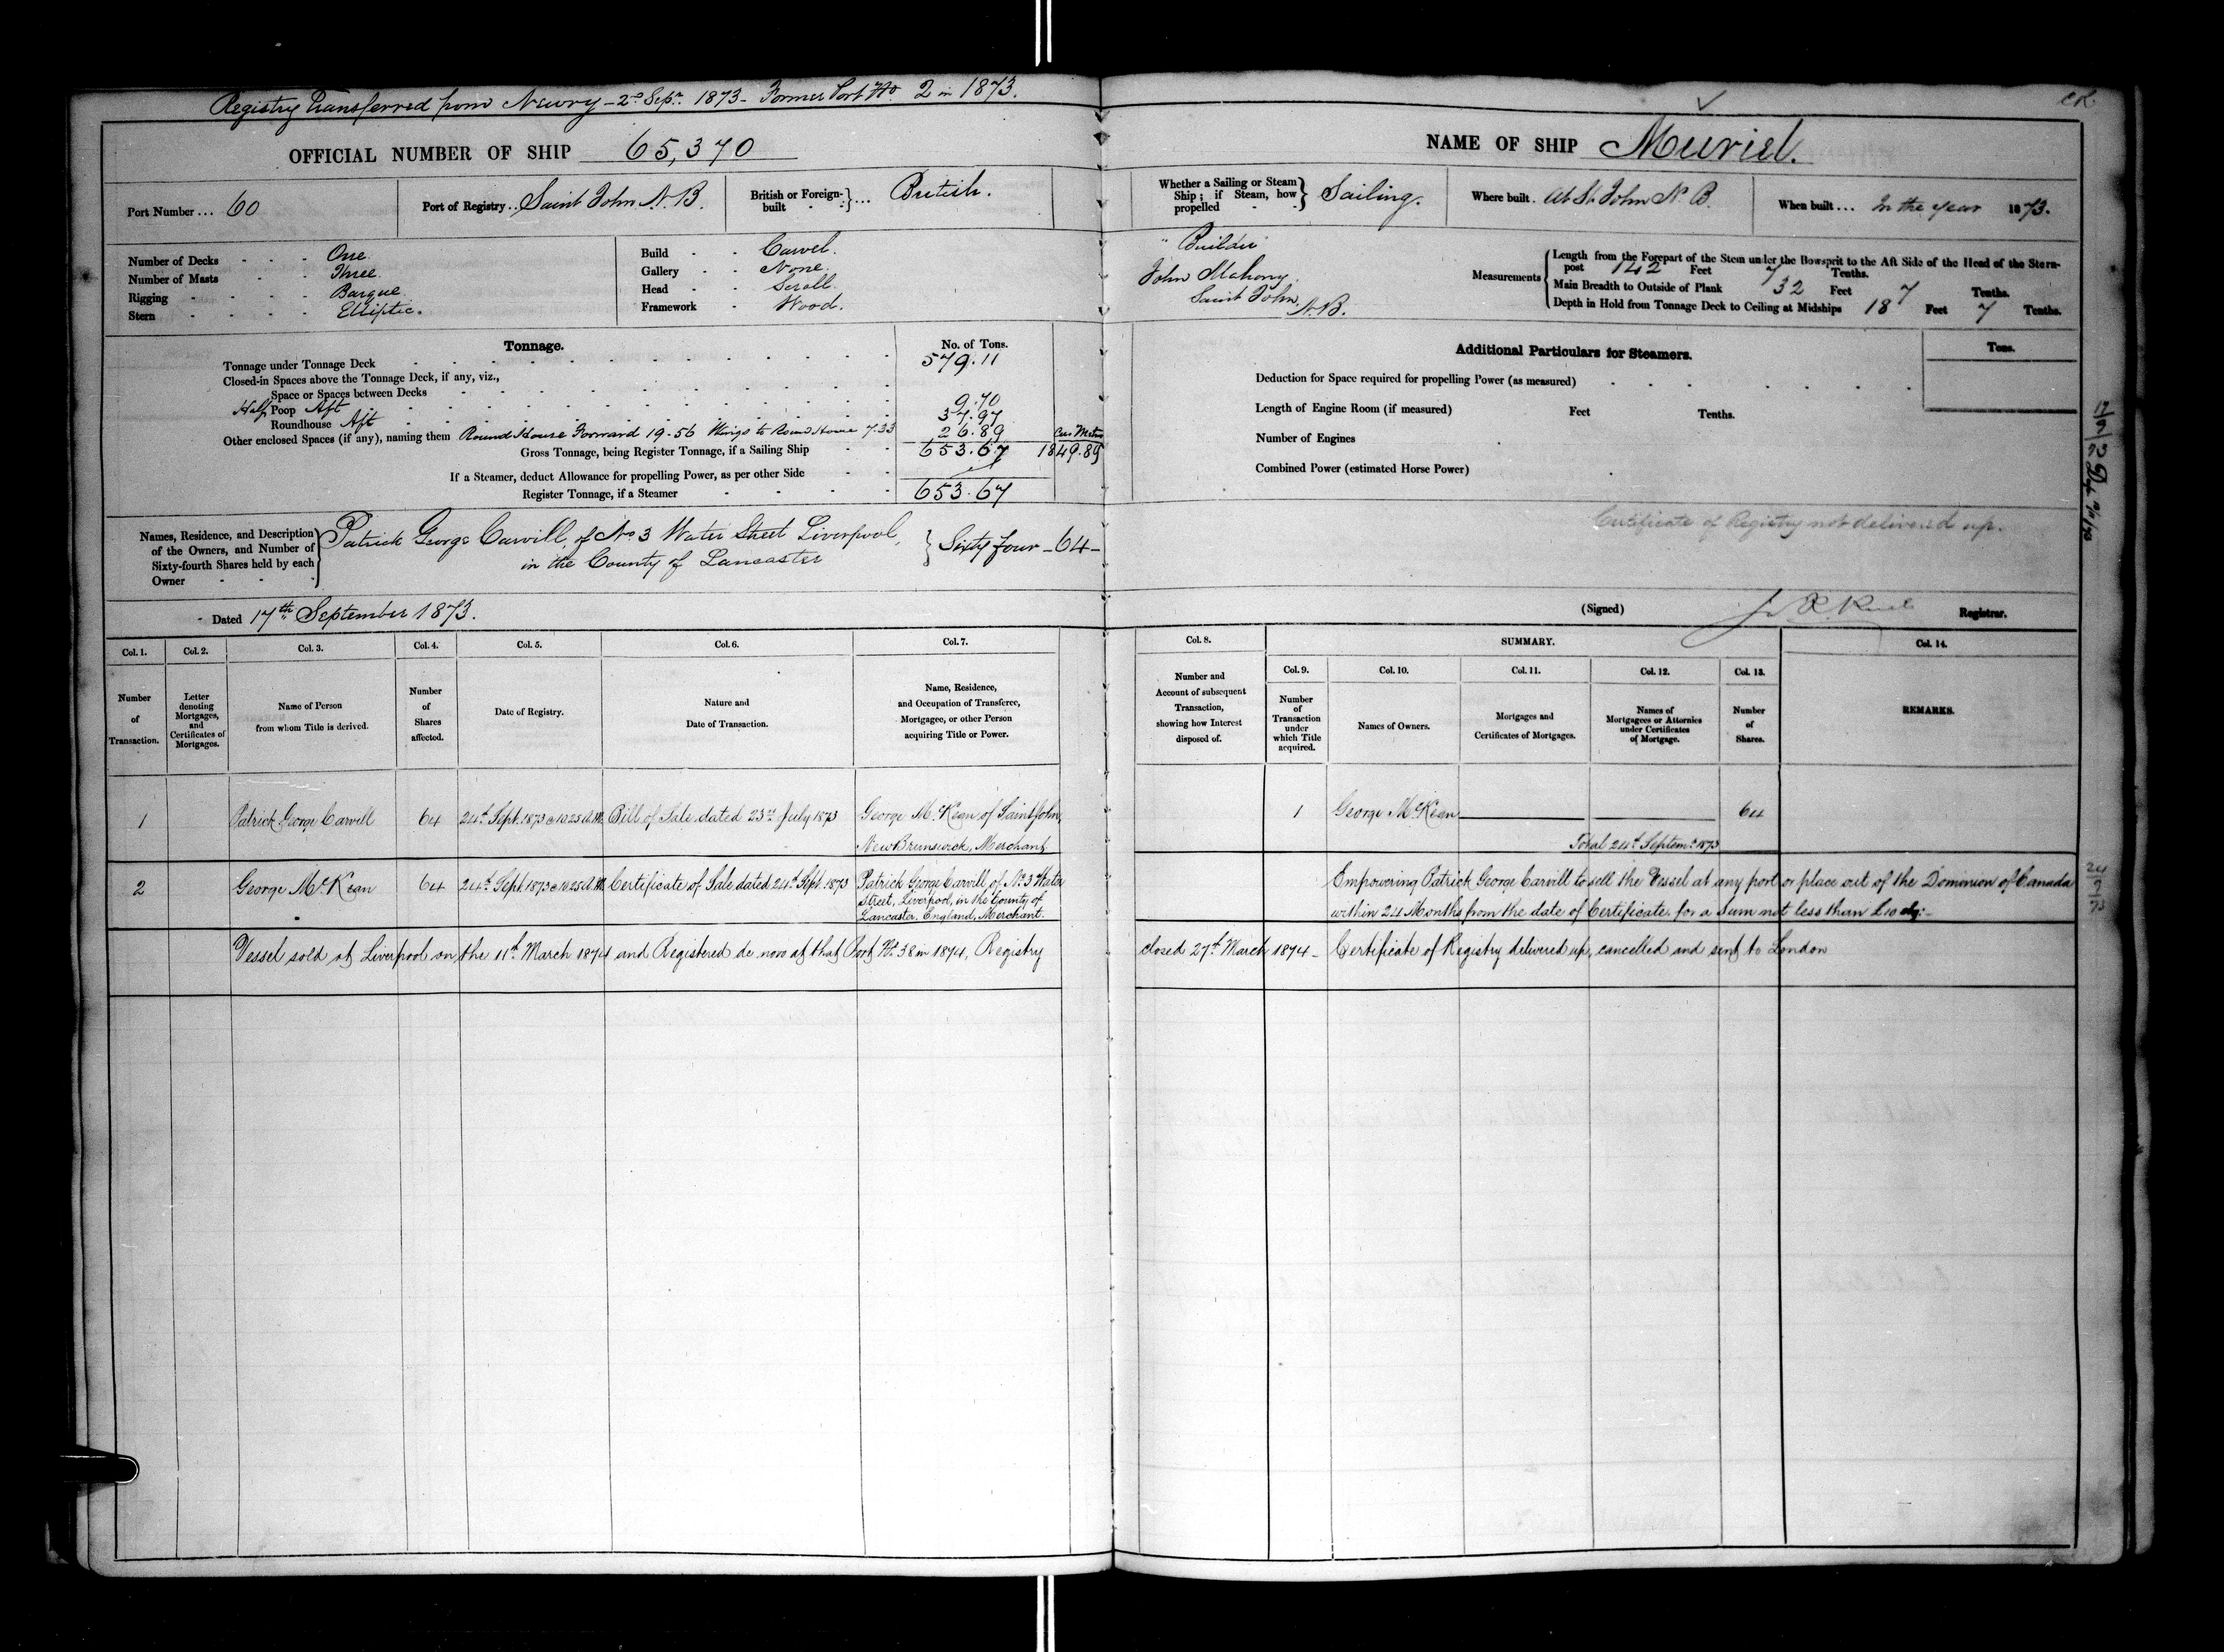 Registry Transferred from Newry - 2nd Sept. 1873 - Former Port No. 2 in 1873.
OFFICIAL NUMBER OF SHIP 65,370
Port Number ... 60
Port of Registry .. Saint John N.B.
British or Foreign-built ... British.
Number of Decks One
Number of Masts Three
Rigging Barque
Stern Elliptic.
Build Carvel.
Gallery None.
Head Scroll.
Framework Wood.
Tonnage. No. of Tons.
Tonnage under Tonnage Deck 579.11
Closed-in Spaces above the Tonnage Deck, if any, viz.,
Space or Spaces between Decks
Half Poop Aft 9.70
Roundhouse Aft 37.97
Other enclosed Spaces (if any), naming them Round House Forward 19.56 Wings to Round House 7.33 26.89
Cub Metres
Gross Tonnage, being Register Tonnage, if a Sailing Ship 653.67 1849.89
If a Steamer, deduct Allowance for propelling Power, as per other Side
Register Tonnage, if a Steamer 653.67
Names, Residence, and Description of the Owners, and Number of Sixty-fourth Shares held by each Owner
Patrick George Carvill, of No 3 Water Street Liverpool,
in the County of Lancaster
Sixty four - 64 -
Dated 17th September 1873.
Col. 1. Col. 2. Col. 3. Col. 4. Col. 5. Col. 6. Col. 7.
Number of Transaction.
Letter denoting Mortgages, and Certificates of Mortgages.
Name of Person from whom Title is derived.
Number of Shares affected.
Date of Registry.
Nature and Date of Transaction.
Name, Residence, and Occupation of Transferee, Mortgagee, or other Person acquiring Title or Power.
1 Patrick George Carvill 64 24th Sept. 1873 @ 10.25 A.M. Bill of Sale dated 23rd July 1873 George McKean of Saint John,
New Brunswick, Merchant
2 George McKean 64 24th Sept 1873 @ 10.25 A.M. Certificate of Sale dated 24th Sept. 1873 Patrick George Carvill of No. 3 Water
Street, Liverpool, in the County of
Lancaster, England, Merchant.
Vessel sold at Liverpool on the 11th March 1874 and Registered de novo at that Port No. 38 in 1874, Registry
NAME OF SHIP Muriel.
Whether a Sailing or Steam Ship; if Steam, how propelled Sailing.
Where built. At St. John N.B.
When built ... In the year 1873.
Builder
John Mahony
Saint John,
N.B.
Measurements
Length from the Forepart of the Stem under the Bowsprit to the Aft Side of the Head of the Stern-
post 142 Feet 7 Tenths.
Main Breadth to Outside of Plank 32 Feet 7 Tenths.
Depth in Hold from Tonnage Deck to Ceiling at Midships 18 Feet 7 Tenths.
Additional Particulars for Steamers.
Tons.
Deduction for Space required for propelling Power (as measured)
Length of Engine Room (if measured) Feet Tenths.
Number of Engines
Combined Power (estimated Horse Power)
Certificate of Registry not delivered up.
(Signed) Registrar.
Col. 8. SUMMARY. Col. 14.
Col. 9. Col. 10. Col. 11. Col. 12. Col. 13.
Number and Account of subsequent Transaction, showing how Interest disposed of.
Number of Transaction under which Title acquired.
Names of Owners.
Mortgages and Certificates of Mortgages.
Names of Mortgagees or Attornies under Certificates of Mortgage.
Number of Shares.
REMARKS.
1 George McKean 64
Total 24th Septem. 1873
Empowering Patrick George Carvill to sell the Vessel at any port or place out of the Dominion of Canada
within 24 Months from the date of Certificate, for a sum not less than £10
closed 27th March 1874 - Certificate of Registry delivered up, cancelled and sent to London
24
9
73